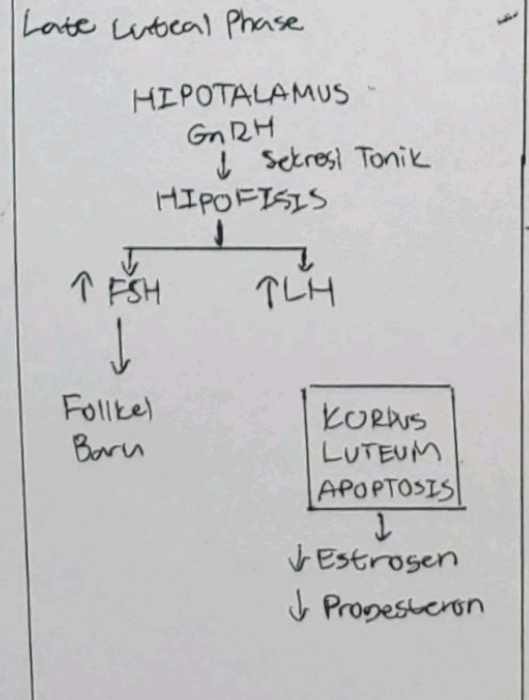 Late Luteal Phase
HIPOTALAMUS
GnRH
↓ Sekresi Tonik
HIPOFISIS
↑ FSH ↑ LH
Folikel
Baru
KORPUS
LUTEUM
APOPTOSIS
↓ Estrogen
↓ Progesteron